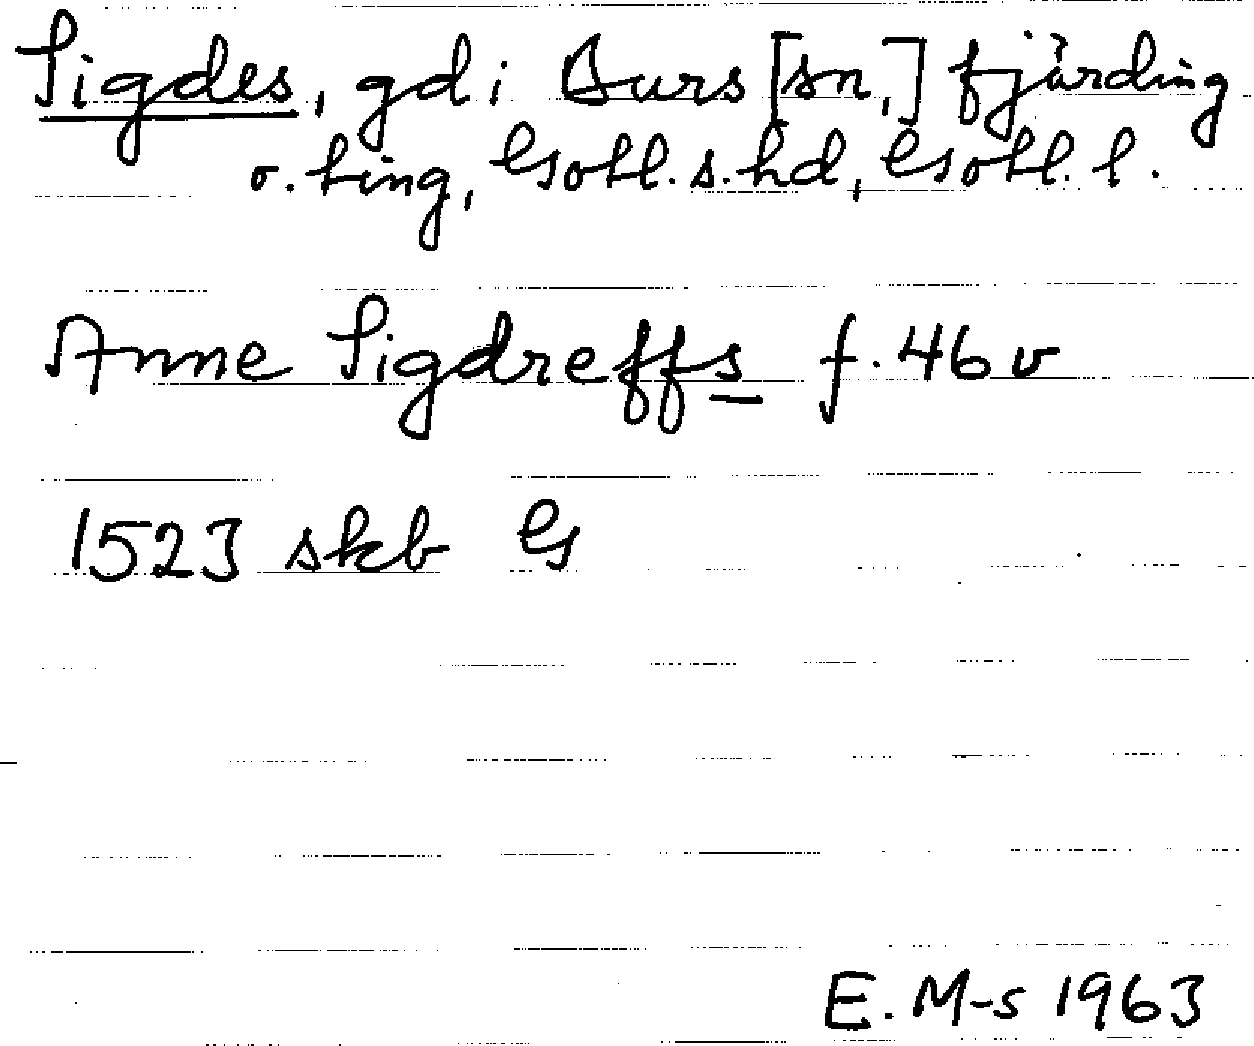 Sigdes, gd i Burs [sn,] fjärding
o. ting, Gotl. s. hd, Gotl. l.
Anne Sigdreffs f. 46 v
1523 skb G
E. M-s 1963